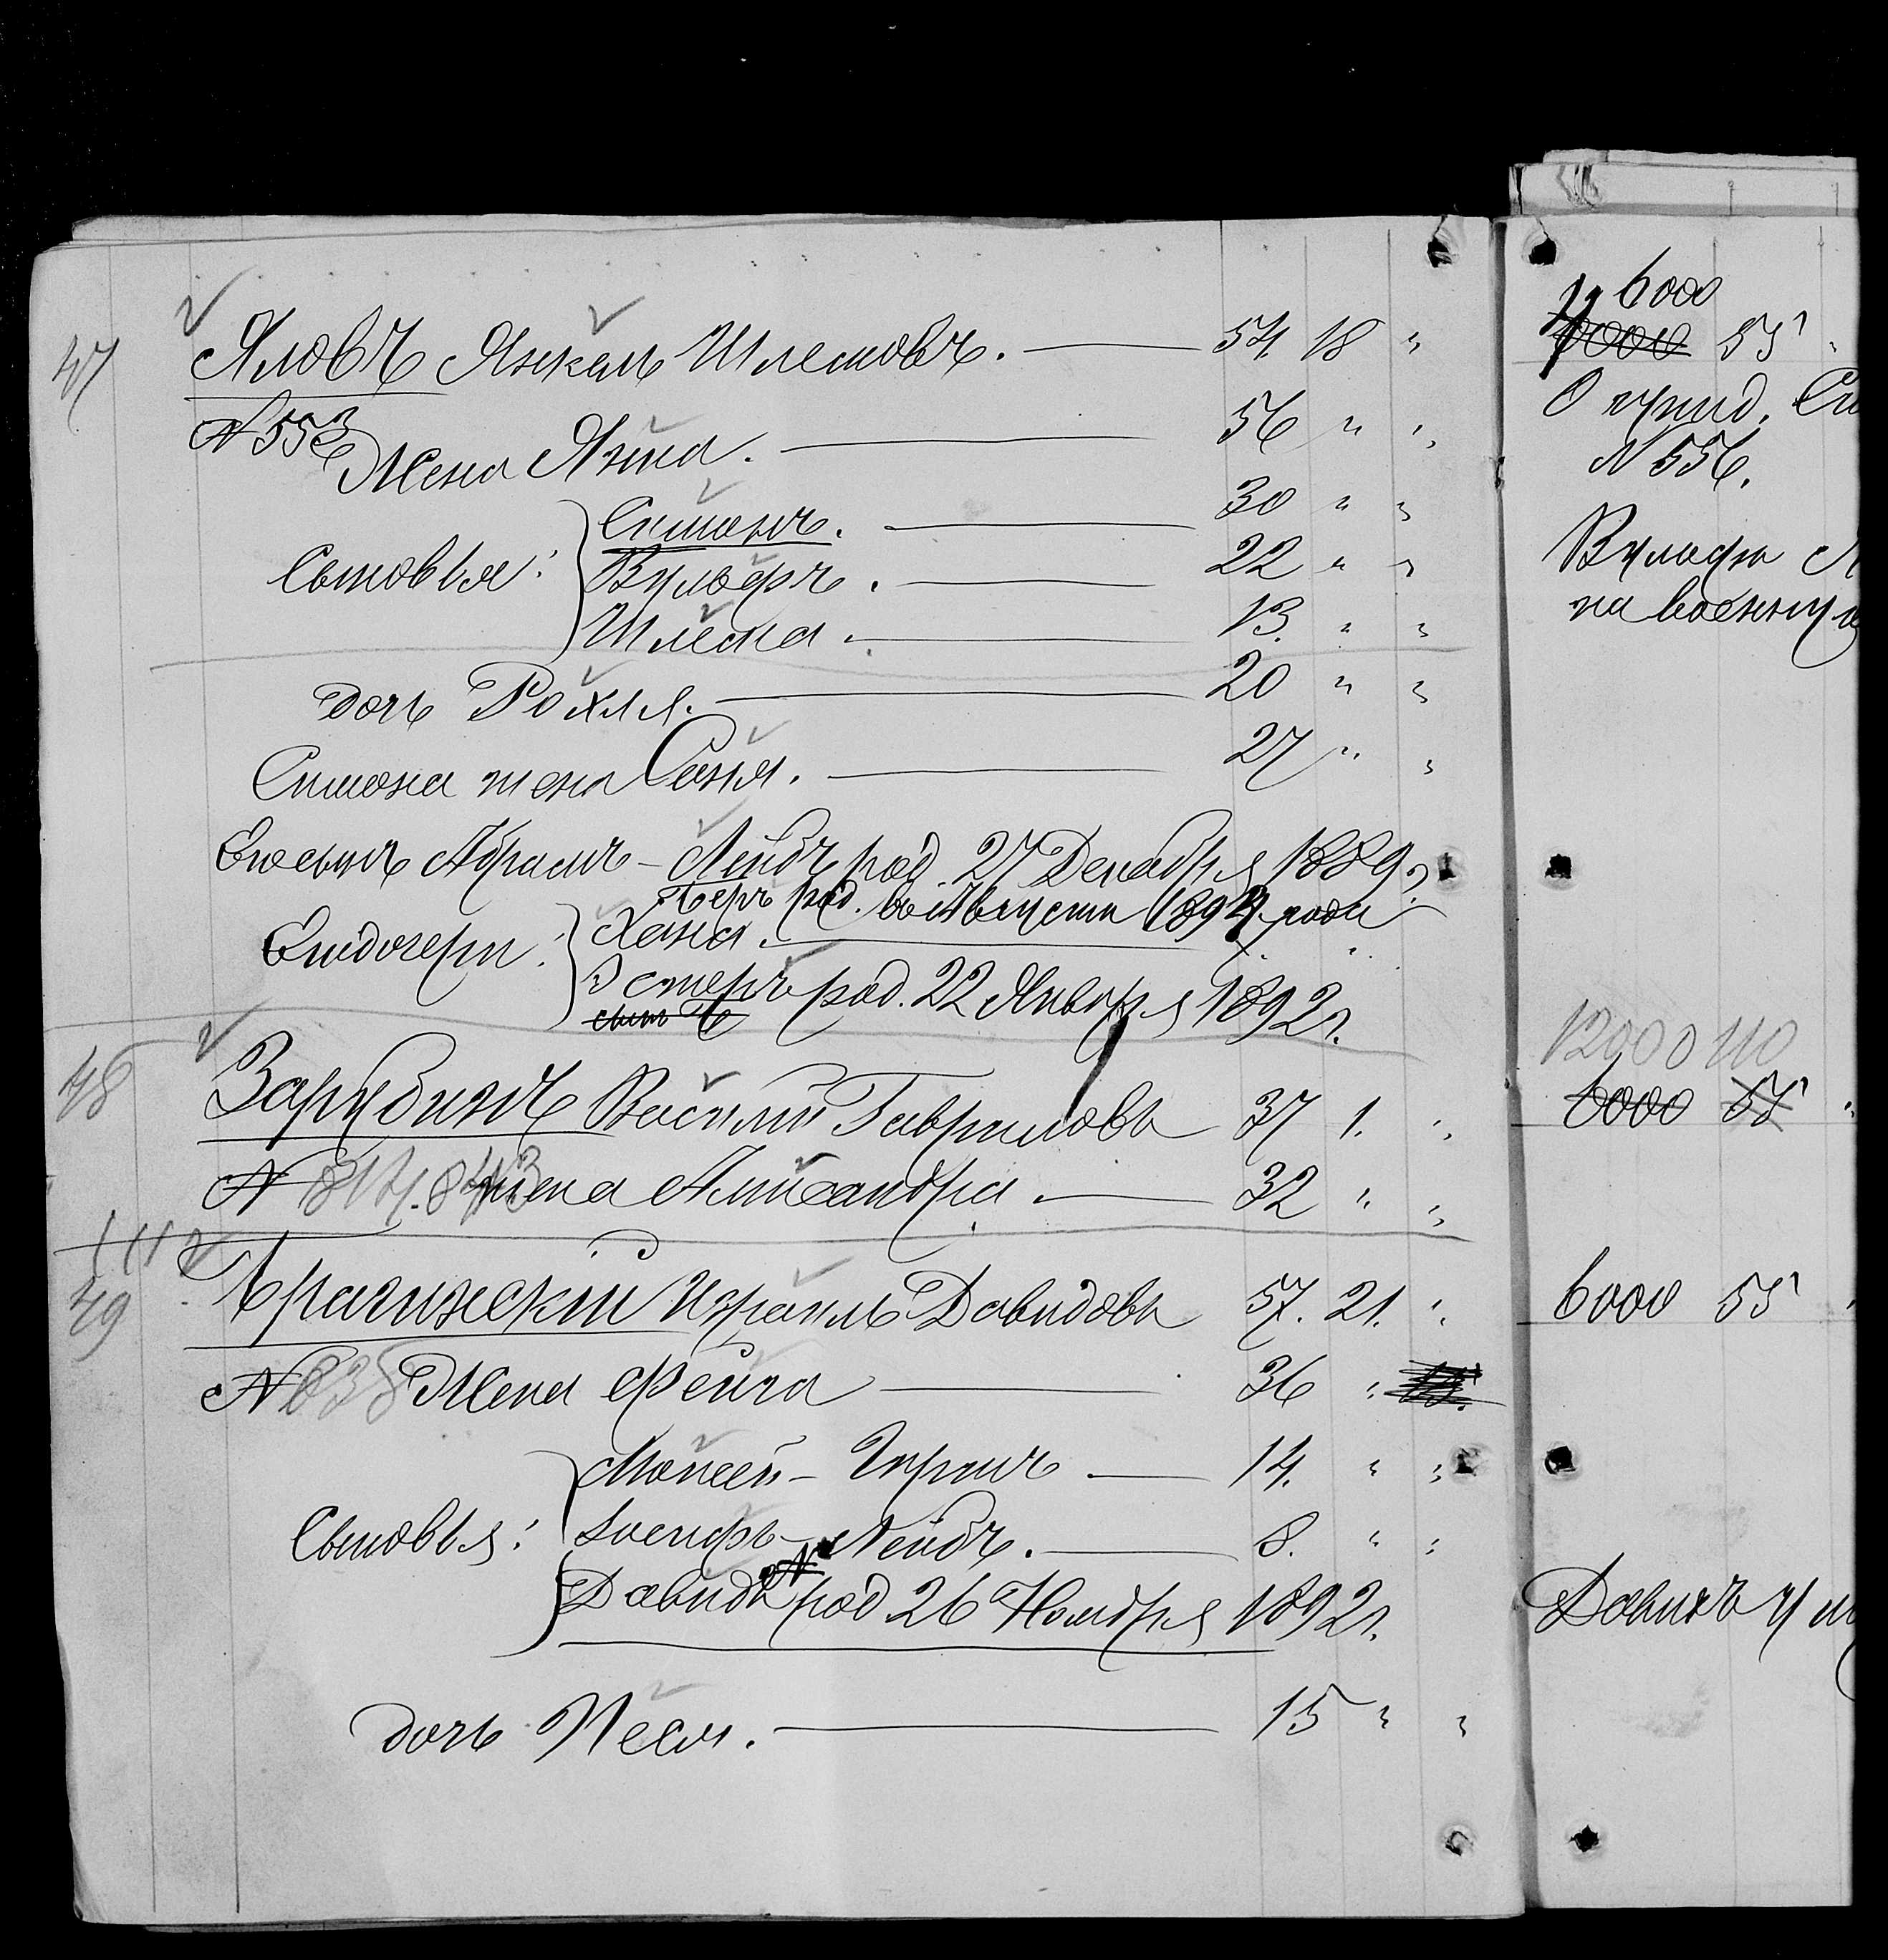 47 Яловъ Янкель Шлемовъ. — 54 18 "
№ 553
Жена Яхна. — 56 " "
Сыновья:
Симонъ. — 30 " "
Вульфъ. — 22 " "
Шлема. — 13. " "
дочь Рохля. — 20 " "
Симона жена Соня. — 27 " "
Его сынъ Абрамъ-Лейбъ род. 27 Декабря 1889 г.
Беръ род. въ Августѣ 1894 года
Его дочери:
Хана.
Эстеръ род. 22 Января 1892 г.
сынъ Б
48 Зарубинъ Василій Гавриловъ 37 1. "
№ 843 жена Александра. — 32 " "
49 Брагинскій Израиль Давидовъ 57. 21. "
№ 838 Жена Фейга — 36 "
Сыновья:
Моисей-Гиршъ — 14. " "
Іосифъ-Лейбъ. — 8. " "
Давидъ род 26 Ноября 1892 г.
дочь Песя. — 15 " "
6000
55
О
№ 556.
Вульфъ
на военную
12000 110
6000 55
6000 55
Давидъ